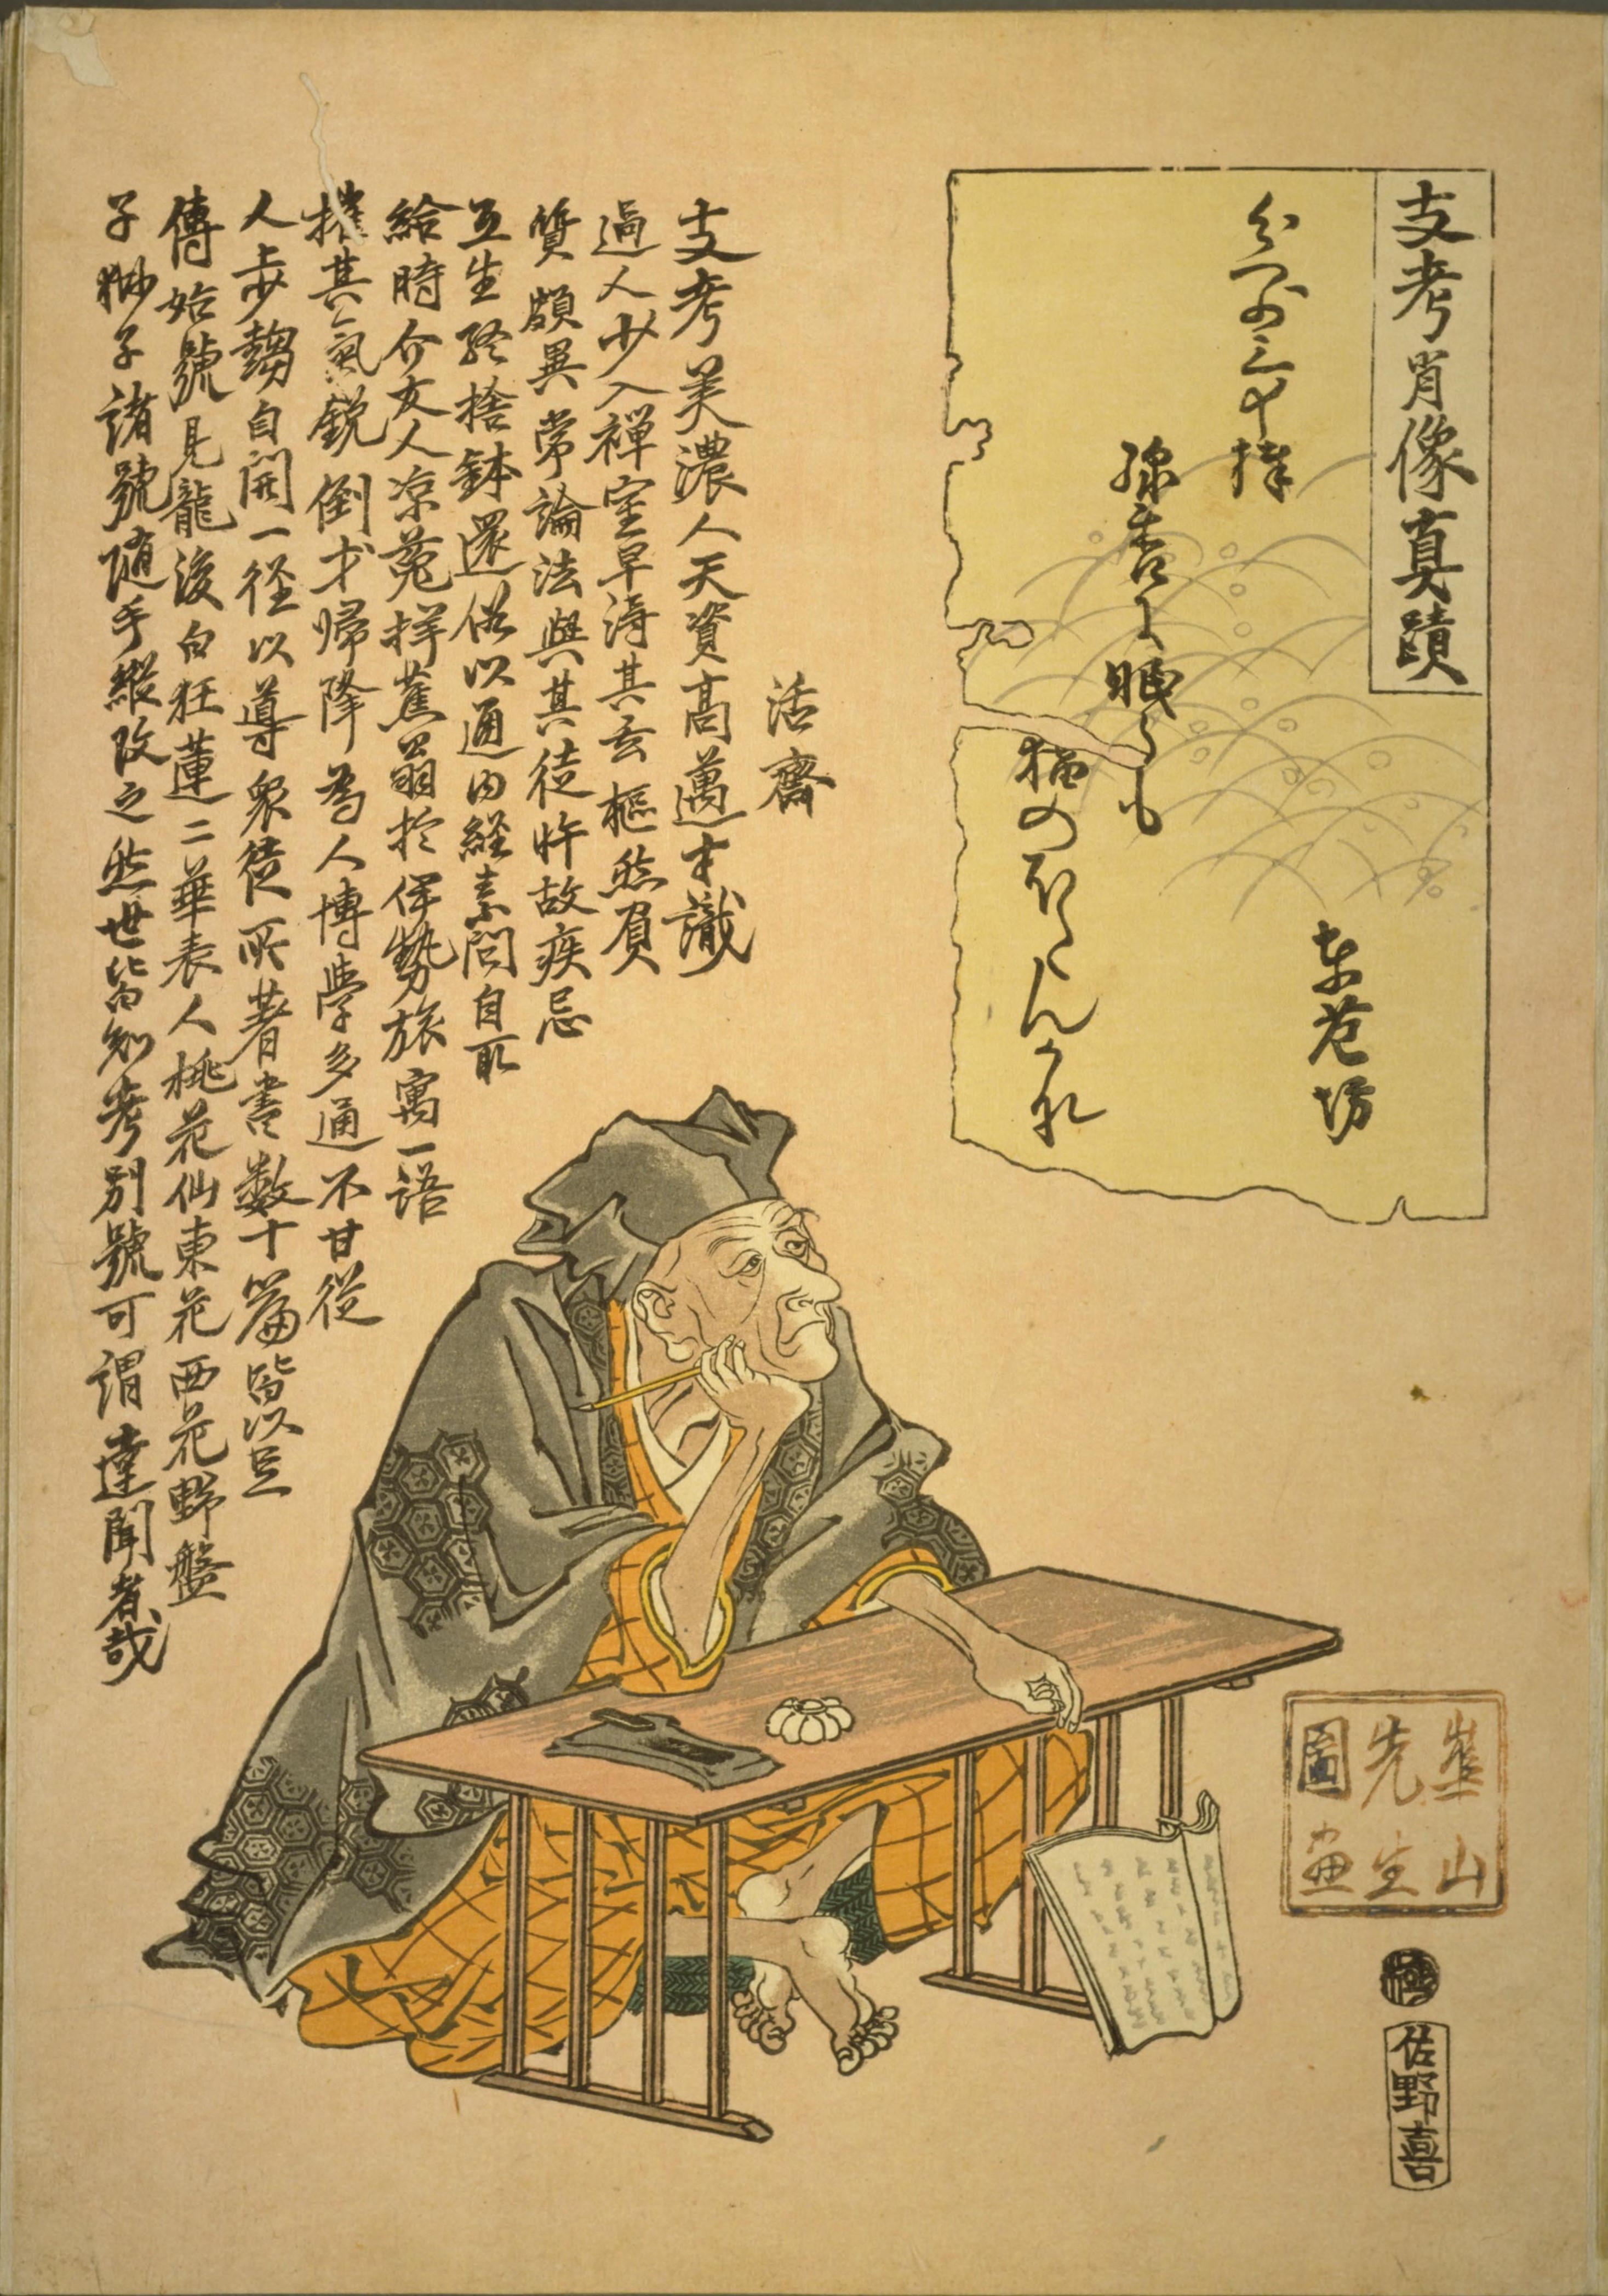 支考肖像真蹟
東花坊
活齋
支考美濃人天資高邁才識
過人少入禅室早得其玄樞然眉
質頗異常論法與其徒忤故疾忌
互生終捨鉢還俗以通内経素問自取
給時介友人凉菟拝蕉翁於伊勢旅寓一語
摧其氣鋭倒才帰降為人博學多通不甘從
人歩趨自開一徑以導衆徒所著書数十篇皆以呈
傳始號見龍後白狂蓮二華表人桃花仙東花西花野盤
子獅子諸號随手縦改之然世皆知考別號可謂達聞者哉
崋山
先生
圖画
極
佐野喜